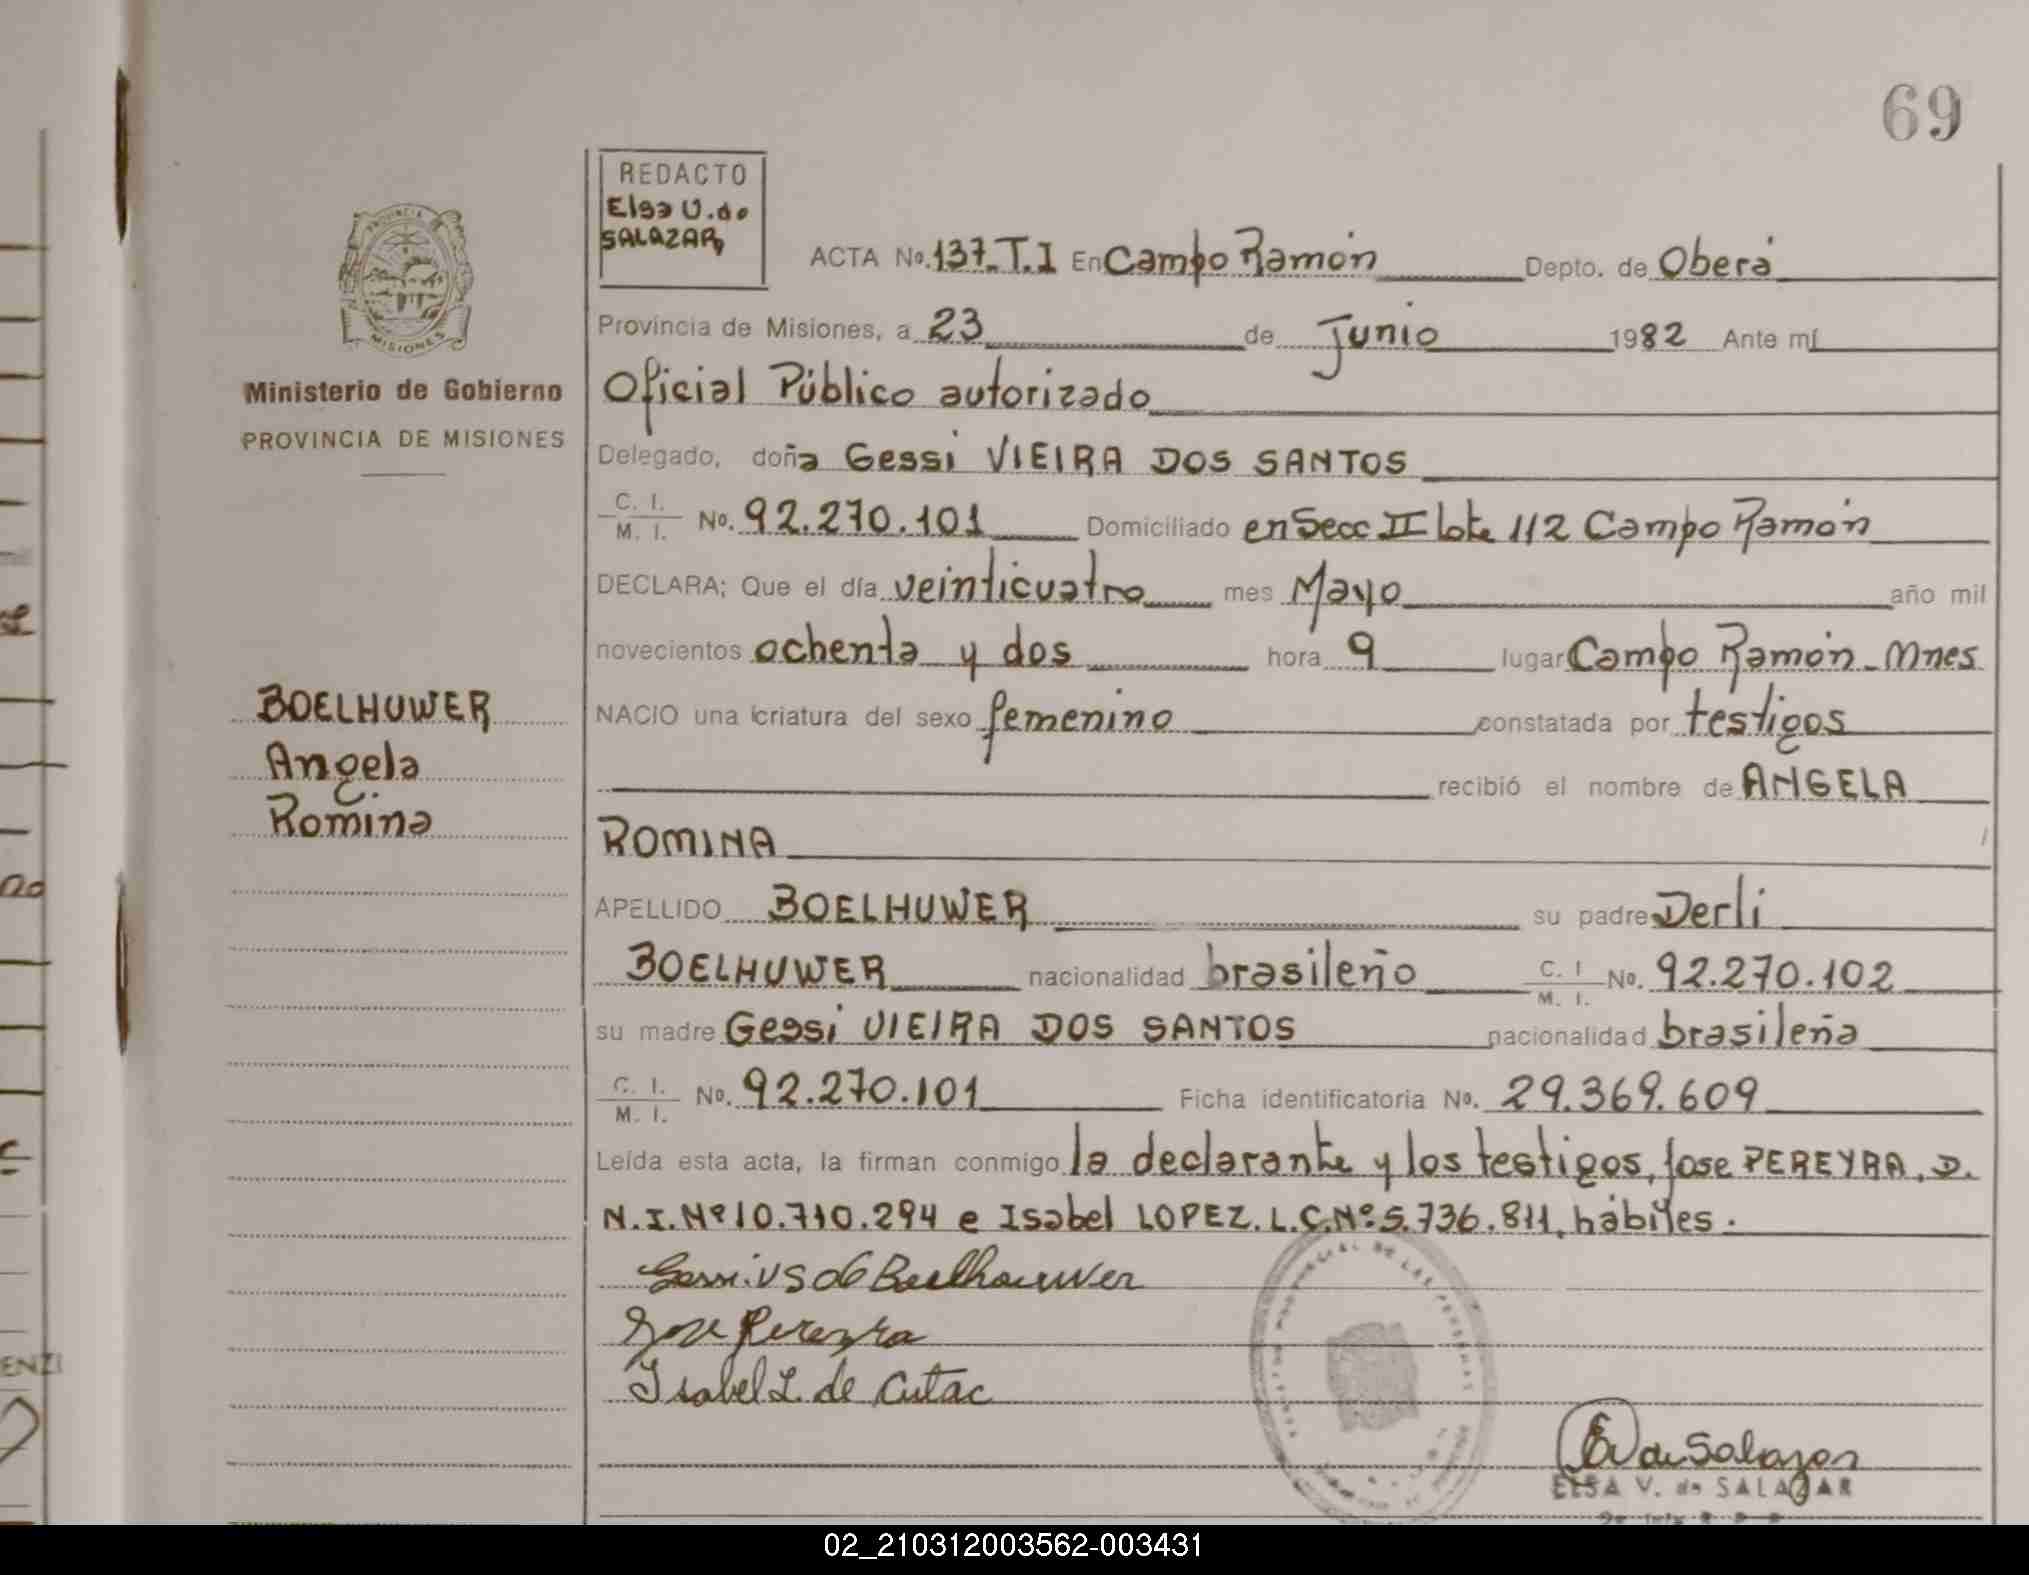 69
REDACTO
Elsa V. de
SALAZAR
ACTA No. 137. T. I En Campo Ramón Depto. de Oberá
PROVINCIA
MISIONES
Provincia de Misiones, a 23 de Junio 1982 Ante mí
Ministerio de Gobierno
PROVINCIA DE MISIONES
Oficial Público autorizado
Delegado, doña Gessi VIEIRA DOS SANTOS
C. I.
M. I. No. 92.270.101 Domiciliado en Secc II lote 112 Campo Ramón
DECLARA; Que el día veinticuatro mes Mayo año mil
novecientos ochenta y dos hora 9 lugar Campo Ramón - Mnes
BOELHUWER
Angela
Romina
NACIO una criatura del sexo femenino constatada por testigos
recibió el nombre de ANGELA
ROMINA
APELLIDO BOELHUWER su padre Derli
BOELHUWER nacionalidad brasileño C. I M. I. No. 92.270.102
su madre Gessi VIEIRA DOS SANTOS nacionalidad brasileña
C. I.
M. I. No. 92.270.101 Ficha identificatoria No. 29.369.609
Leída esta acta, la firman conmigo la declarante y los testigos, Jose PEREYRA, D.
N.I. Nº 10.710.294 e Isabel LOPEZ. L.C. Nº 5.736.811, hábiles.
Jose Pereyra
Isabel L. de Cutac
EV de Salazar
ELSA V. de SALAZAR
ENZI
02_210312003562-003431